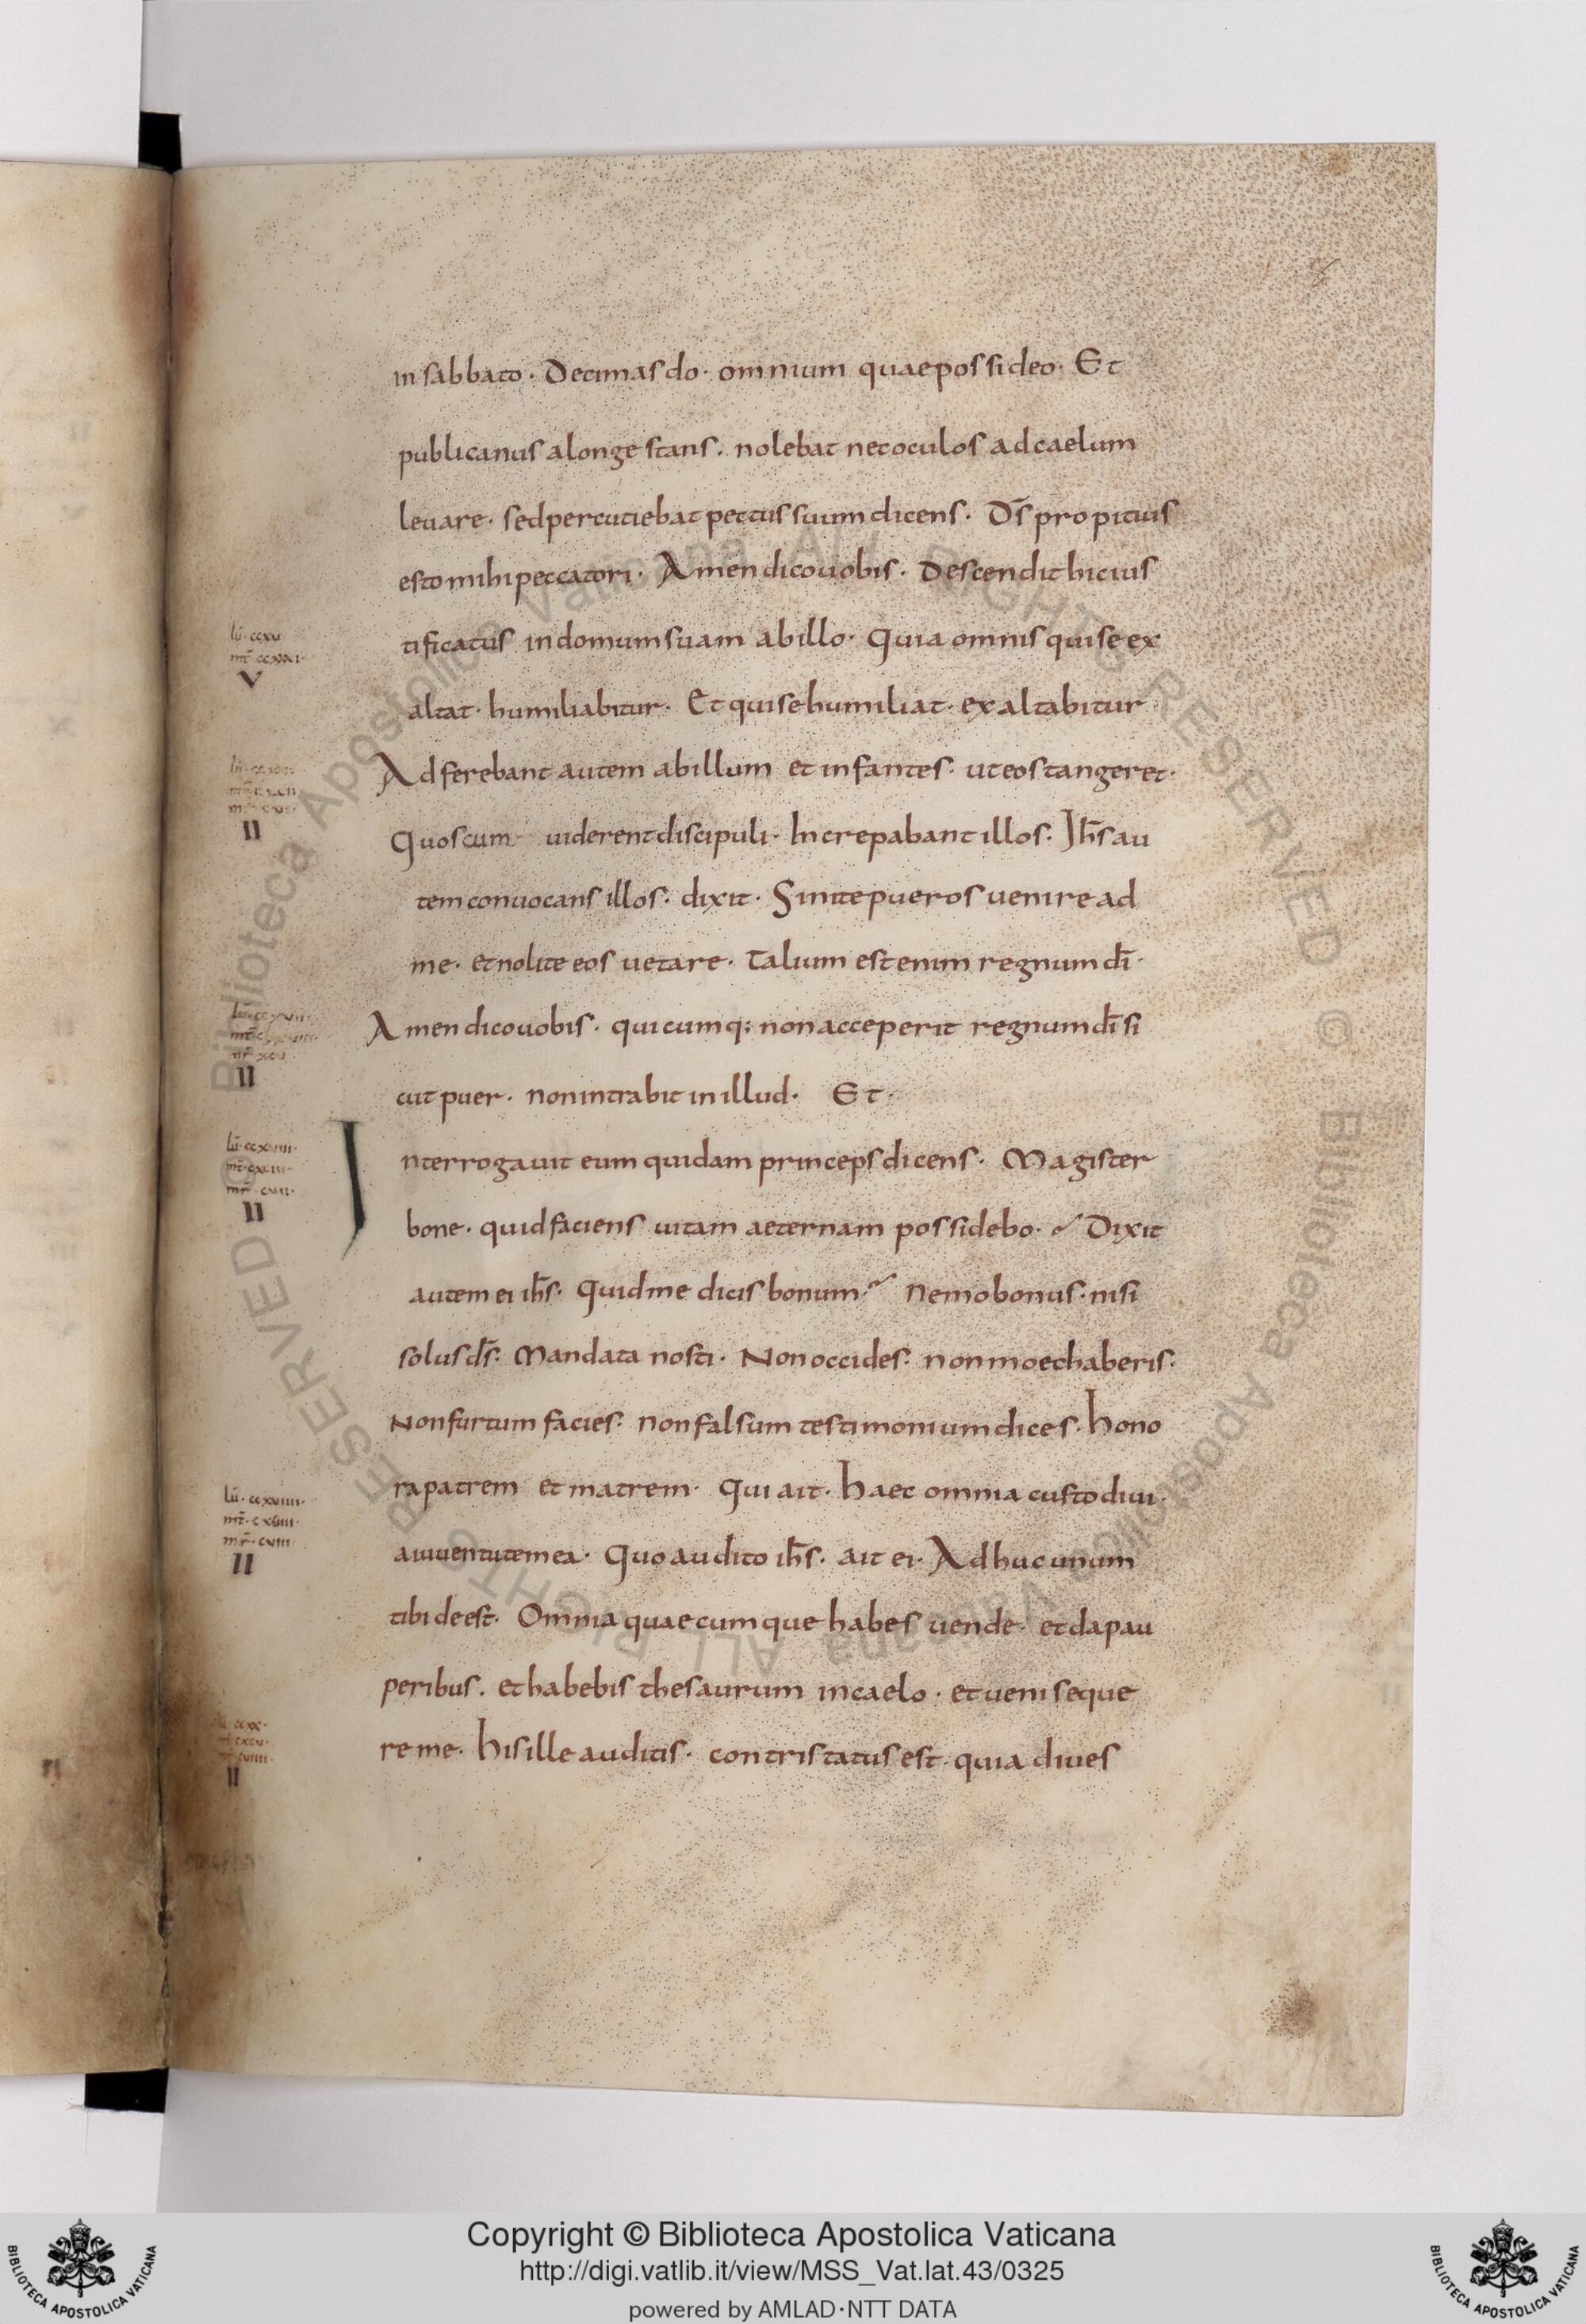 in sabbato · Decimas do · omnium quae possideo · Et
publicanus alonge stans · nolebat nec oculos ad caelum
levare · sed percutiebat pectus suum dicens · D̄s propitius
esto mihi peccatori · Amen dico vobis · Descendit hic ius
lū · ccxv
tificatus in domum suam ab illo · Quia omnis qui se ex
V
altat · humiliabitur · Et qui se humiliat · exaltabitur
Adferebant autem ab illum et infantes · ut eos tangeret ·
II
Quos cum viderent discipuli · Increpabant illos · Ih̄s au
tem convocans illos · dixit · Sinite pueros venire ad
me · et nolite eos vetare · Talium est enim regnum dī ·
Amen dico vobis · quicumq; non acceperit regnum dī si
II
cut puer · non intrabit in illud · Et ·
lū · ccxviii
Interrogavit eum quidam princeps dicens · Magister
II
bone · quid faciens vitam aeternam possidebo · Dixit
autem ei ih̄s · Quid me dicis bonum · Nemo bonus · nisi
solus d̄s · Mandata nosti · Non occides · non moechaberis ·
Non furtum facies · non falsum testimonium dices · hono
lū · ccxviiii ·
ra patrem et matrem · Qui ait · haec omnia custodivi ·
mt̄ · cxciiii ·
mr̄ · cviii ·
II
a iuventute mea · Quo audito ih̄s · ait ei · Adhuc unum
tibi deest · Omnia quaecumque habes vende · et da pau
peribus · et habebis thesaurum in caelo · et veni seque
re me · his ille auditis · contristatus est · quia dives
II
Biblioteca Apostolica Vaticana ALL RIGHTS RESERVED ©
Biblioteca Apostolica Vaticana ALL RIGHTS RESERVED ©
Copyright © Biblioteca Apostolica Vaticana
http://digi.vatlib.it/view/MSS_Vat.lat.43/0325
powered by AMLAD·NTT DATA
BIBLIOTECA APOSTOLICA VATICANA
BIBLIOTECA APOSTOLICA VATICANA